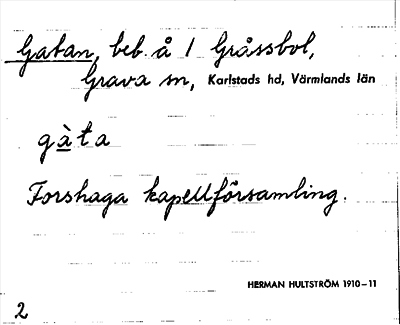 Gatan, beb. å 1 Gråssbol,
Grava sn, Karlstads hd, Värmlands län
gàta
Forshaga kapellförsamling.
HERMAN HULTSTRÖM 1910–11
2